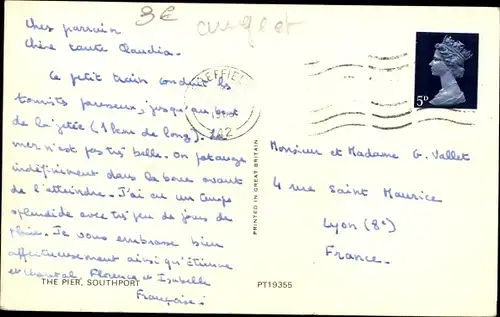 3€
Cher parrain
Chère tante Claudia.
Ce petit train conduit les
touristes paresseux, jusqu'au bout
de la jetée (1 km de long). La
mer n'est pas très belle. On patauge
indéfiniment dans la boue avant
de l'atteindre. J'ai eu un temps
splendide avec très peu de jours de
pluie. Je vous embrasse bien
affectueusement ainsi qu'Etienne
et Chantal, Florence et Isabelle
Françoise.
THE PIER, SOUTHPORT
PRINTED IN GREAT BRITAIN
PT19355
5D
Monsieur et Madame G. Vallet
4 rue Saint Maurice
Lyon (8e)
France.